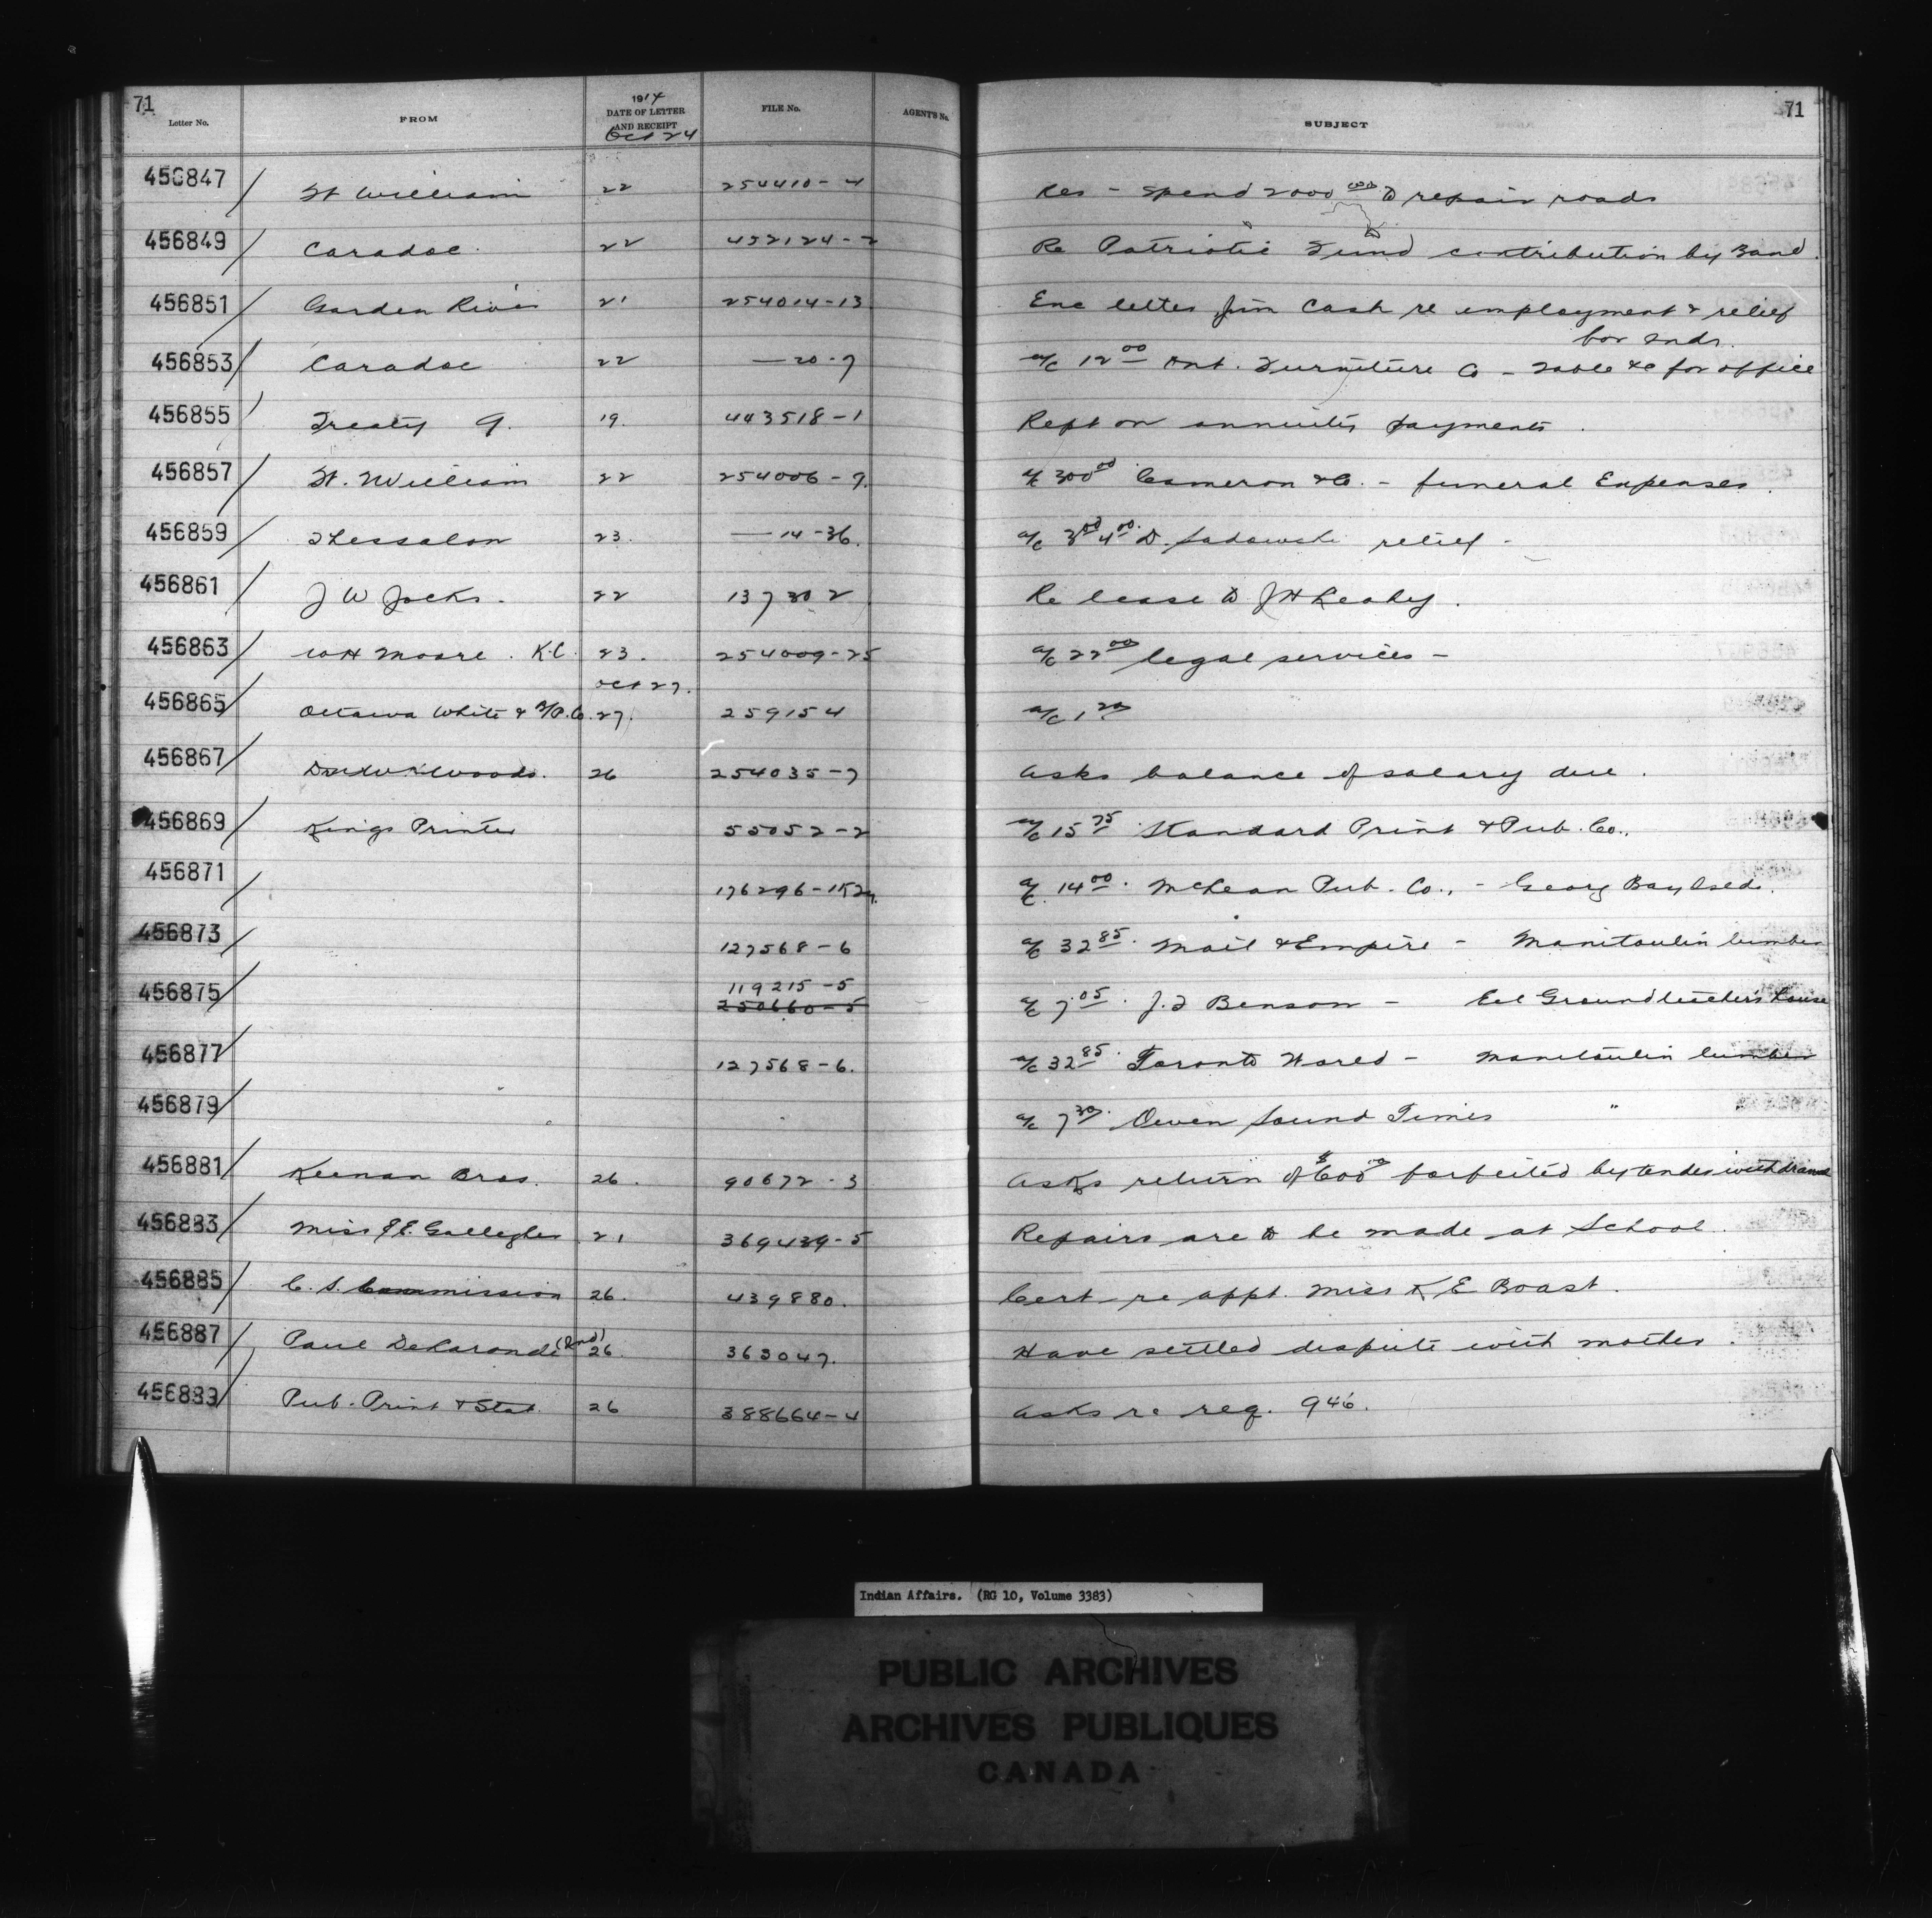 71 71
Letter No. FROM 1914 DATE OF LETTER AND RECEIPT FILE No. AGENT'S No. SUBJECT
Oct 24
456847 Ft William 22 254410-4 Res - spend 2000 to repair roads
456849 Caradoc 22 452124-2 Re Patriotic Fund contribution by Band.
456851 Garden River 21 254014-13 Enc letter Jim Cash re employment & relief
for Inds.
456853 Caradoc 22 — 20-7 a/c 12 00 Ont. Furniture Co - Table &c for office
456855 Treaty 9. 19. 443518-1 Rept on annuity payments.
456857 Ft. William 22 254006-9. a/c 300 00 Cameron & Co. - funeral Expenses.
456859 Thessalon 23. — 14-36. a/c 3 00 4 00 D. Sadowski relief -
456861 J W Jocks. 22 137302 Re lease to J H Leahy.
456863 W H Moore. K.C. 23. 254009-25 a/c 22 00 legal services -
Oct 27.
456865 Ottawa White & Co. 27. 259154 a/c 1 20
456867 Woods. 26 254035-7 Asks balance of salary due.
456869 Kings Printer 55052-2 a/c 15 75 Standard Print & Pub. Co.,
456871 176296- a/c 14 00. McLean Pub. Co., - Georg Bay Isds.
456873 127568-6 a/c 32 85. Mail & Empire - Manitoulin lumber
119215-5
456875 250660-5 a/c 7.05. J. Benson - Eel Ground teacher's house
456877 127568-6. a/c 32 85. Toronto World - Manitoulin lumber
456879 a/c 7 30. Owen Sound Times "
456881 Keenan Bros. 26. 90672-3 Asks return of $600 00 forfeited by tender withdrawal
456883 Miss J E. Gallegher 21 369439-5 Repairs are to be made at School.
456885 C. S. Commission 26. 439880. Cert re appt. Miss K E Boast.
456887 Paul DeLaronde (Ind) 26. 363047. Have settled dispute with mother.
456889 Pub. Print & Stat. 26 388664-4 Asks re req. 946.
Indian Affairs. (RG 10, Volume 3383)
PUBLIC ARCHIVES
ARCHIVES PUBLIQUES
CANADA